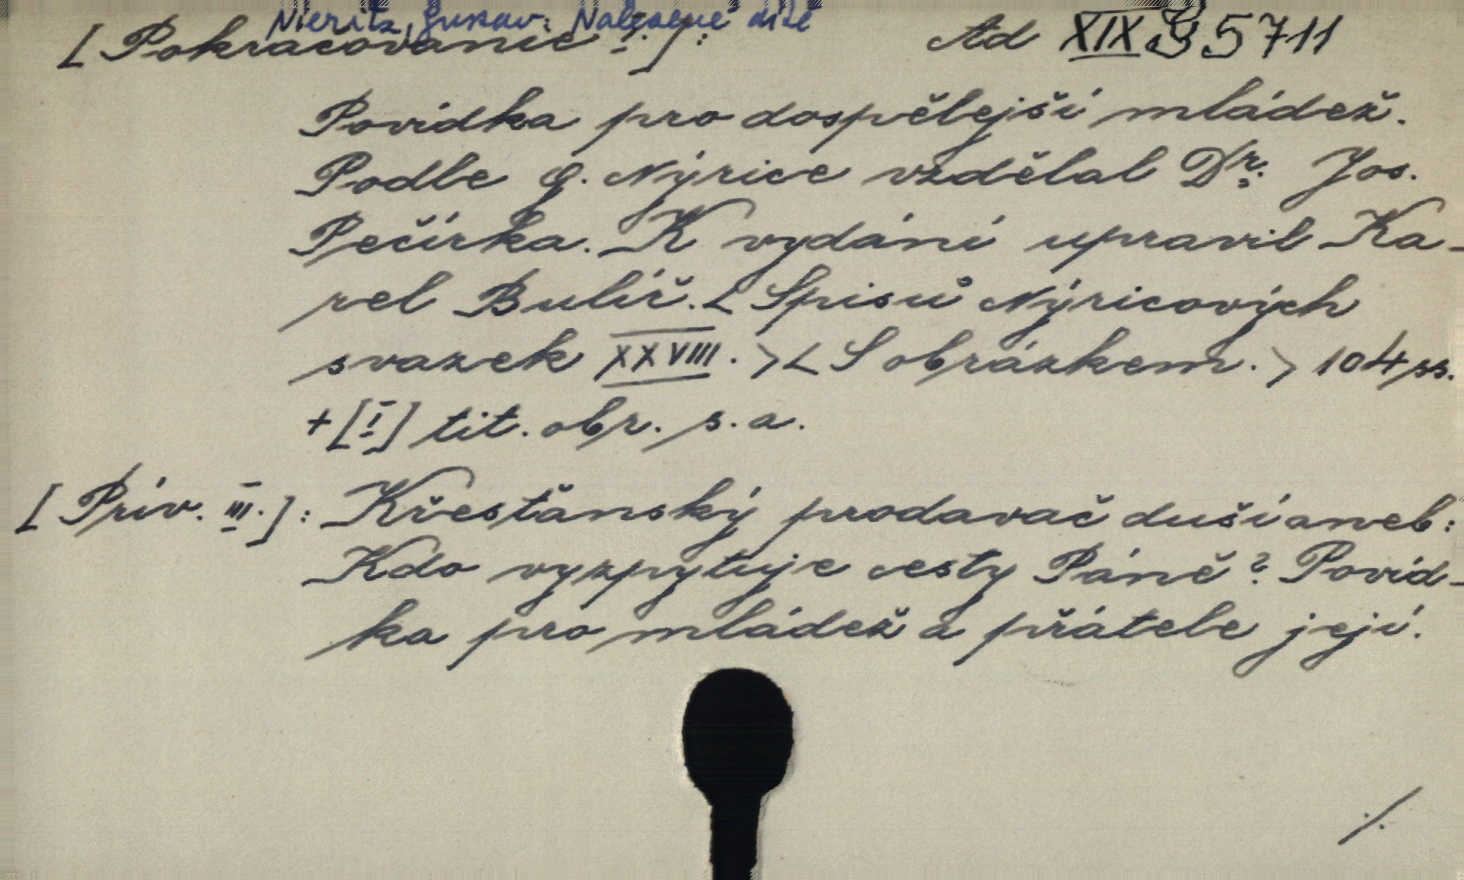 Nieritz, Gustav: Nalezené dítě
[Pokračování I.]: Ad XIX G 5711
Povídka pro dospělejší mládež.
Podle G. Nýrice vzdělal Dr. Jos.
Pečírka. K vydání upravil Ka-
rel Bulíř. < Spisů Nýricových
svazek XXVIII. > < S obrázkem. > 104 ss.
+ [I] tit. obr. s. a.
[Přív. III.]: Křesťanský prodavač duší aneb:
Kdo vyzpytuje cesty Páně? Povíd-
ka pro mládež a přátele její.
./.